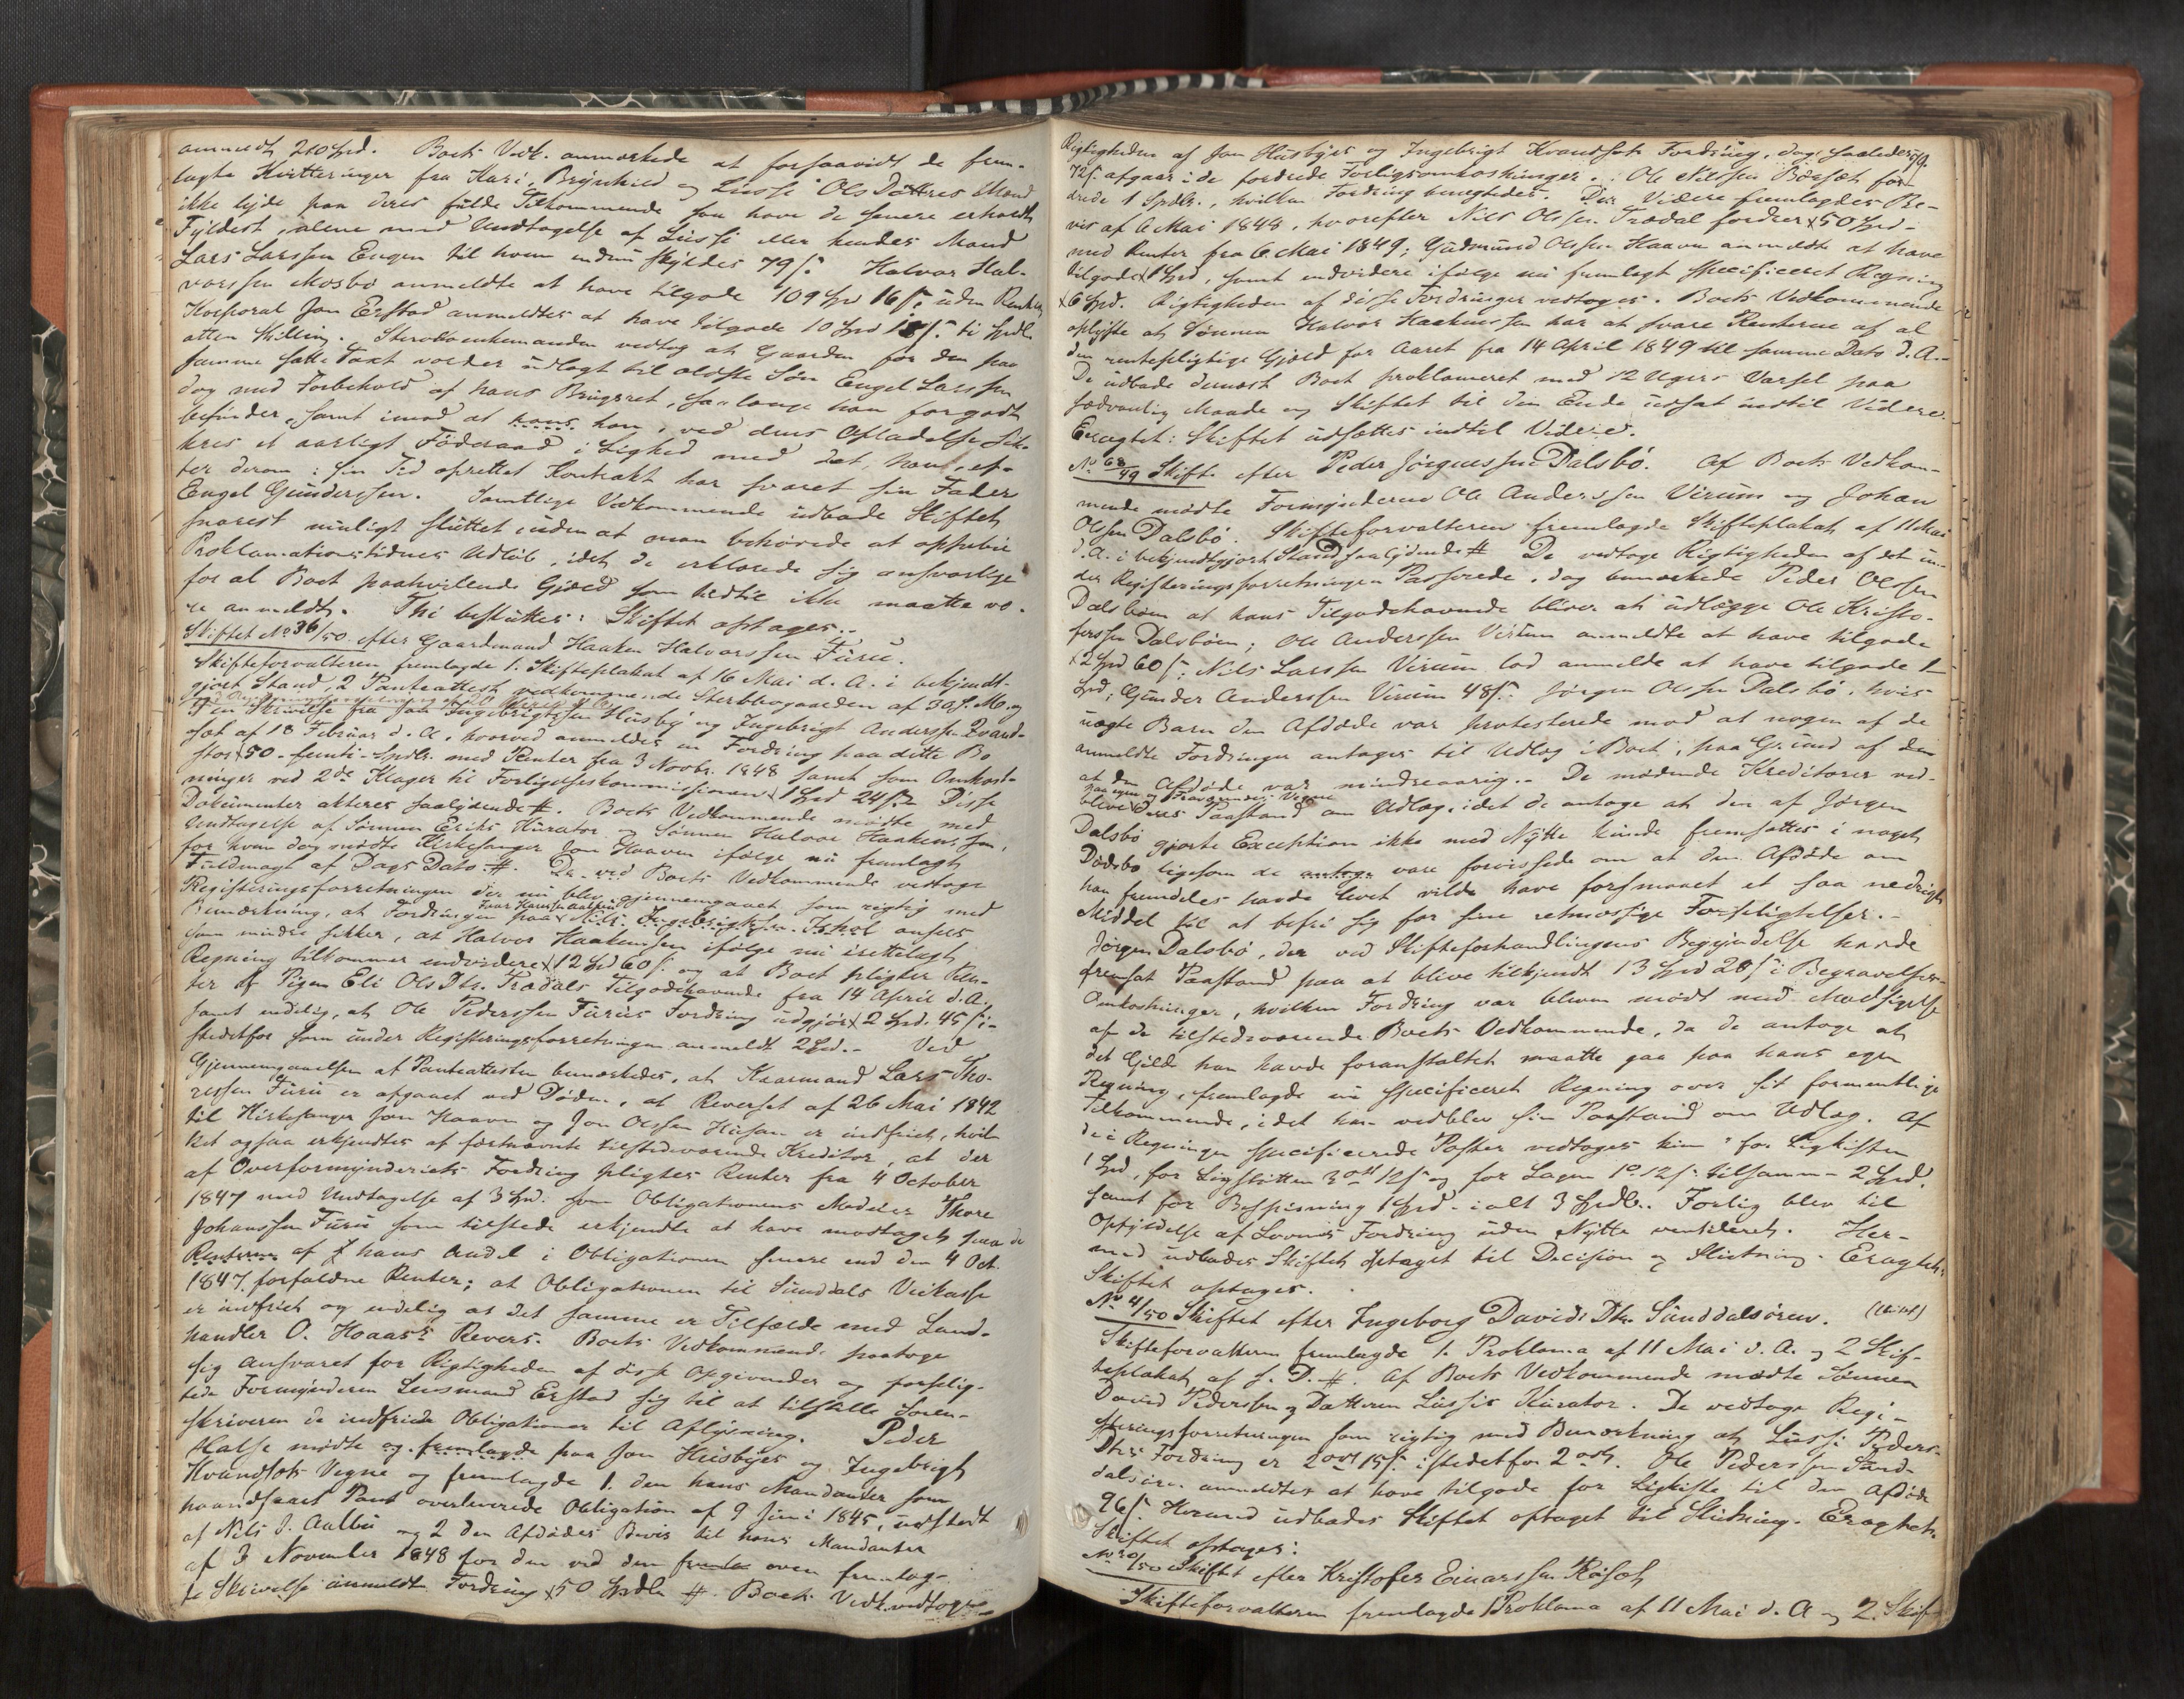 anmeldt 210 Spd. Boets Vedk. anmærkede at forsaavidt de frem-
lagte Kvitteringer fra Kari, Brynhild og Lussi Ols Døttres Mænd
ikke lyde paa deres fulde Tilkommende saa have de senere erholdt
Fyldest, alene med Undtagelse af Lussi eller hendes Mand
Lars Larssen Engen til hvem endnu skyldes 79 s. Halvor Hal-
vorssen Mosbø anmeldte at have tilgode 109 Spd 16 s. uden Renter,
Korporal Jon Erstad anmeldtes at have tilgode 10 Spd 18 s. ti Spdl.
atten Skilling. Sterboenkemanden vedtog at Gaarden for den paa
samme satte Taxt vorder udlagt til ældste Søn Engel Larssen
dog med Forbehold af hans Brugsret, saalænge han forgodt
befinder, samt imod at han, ved dens Afladelse sik-
kres et aarligt Føderaad i Lighed med det, han, ef-
ter derom i sin Tid oprettet Kontrakt har svaret sin Fader
Engel Gunderssen. Samtlige Vedkommende udbade Skiftet
snarest muligt sluttet uden at man behøvede at oppebie
Proklamationstidens Udløb, idet de erklærede sig ansvarlige
for al Boet paahvilende Gjæld som hidtil ikke maatte væ-
re anmeldt. Thi besluttes: Skiftet optages.
Skiftet No 36/50 efter Gaardmand Haaken Halvorssen Furu.
Skifteforvalteren fremlagde 1. Skifteplakat af 16 Mai d. A. i bekjendt-
gjort Stand, 2 Panteattest vedkommende Sterbbogaarden af 30 f. M. og
en Skrivelse fra Jon Ingebrigtssen Husby og Ingebrigt Anderssen Kvand-
set af 18 Februar d. A., hvorved anmeldes en Fordring paa dette Bo
stor 50 - femti - Spdlr. med Renter fra 3 Novbr. 1848 samt som Omkost-
ninger ved 2de Klager til Forligelseskommissionen 1 Spd 24 s. Disse
Dokumenter akteres saalydende #. Boets Vedkommende mødte med
Undtagelse af Sønnen Eriks Kurator og Sønnen Halvor Haakenssen,
for hvem dog mødte Kirkesanger Jon Haaven ifølge nu fremlagt
Fuldmagt af Dags Dato #. De ved Boets Vedkommende vedtage
Registreringsforretningen der nu blev gjennemgaaet som rigtig med
Bemærkning, at Fordringen paa Nils Ingebrigtssen ansees
som mindre sikker, at Halvor Haakenssen ifølge nu irettelagt
Regning tilkommer endvidere 12 Spd 60 s. og at Boet pligter Ren-
ter af Pigen Eli Ols Dtr. Trædals Tilgodehavende fra 14 April d. A.
samt endelig, at Ole Pederssen Furus Fordring udgjør 2 Spd. 45 s. i-
stedetfor som under Registreringsforretningen anmeldt 2 Spd. - Ved
Gjennemgaaelsen af Panteattesten bemærkedes, at Kaarmand Lars Tho-
ressen Furu er afgaaet ved Døden, at Reverset af 26 Mai 1842
til Kirkesanger Jon Haaven og Jon Olssen Husan er indfriet, hvil-
ket ogsaa erkjendtes af førstnævnte tilstedeværende Kreditor, at der
af Overformynderiets Fordring pligtes Renter fra 4 October
1847 med Undtagelse af 3 Spd. som Obligationens Medeier Thore
Johanssen Furu som tilstede erkjendte at have modtaget paa de
Renterne af hans Andel i Obligationen senere end den 4 Oct.
1847 forfaldne Renter; at Obligationen til Sunddals Veikasse
er indfriet og endelig at det samme er Tilfælde med Land-
handler O. Hoaass Revers. Boets Vedkommende paatoge
sig Ansvaret for Rigtigheden af disse Opgivender og forplig-
tede Formynderen Lensmand Erstad sig til at tilstille Soren-
skriveren de indfriede Obligationer til Aflysning. Peder
Halse mødte og fremlagde paa Jon Husbyes og Ingebrigt
Kvandsets Vegne og fremlagde 1. den hans Mandanter som
haandfaaet Pant overleverede Obligation af 9 Juni 1845, udstedt
af Nils J. Aalbu og 2 den Afdødes Bevis til hans Mandanter
af 3 November 1848 for den ved den oven fremlag-
te Skrivelse anmeldte Fordring 50 Spdlr #. Boets Vedk. vedtoge
Rigtigheden af Jon Husbyes og Ingebrigt Kvandsets Fordring, dog saaledes at
72 s. afgaar i de fordrede Forligsomkostninger. Ole Nilssen Børset for-
drede 1 Spdlr., hvilken Fordring benægtedes. Der Videre fremlagdes Be-
vis af 6 Mai 1848, hvorefter Nils Olssen Trædal fordrer 50 Spd -
med Renter fra 6 Mai 1849; Gudmund Olssen Haaven anmeldte at have
tilgode 1 Spd, samt endvidere ifølge nu fremlagt specificeret Regning
6 Spd. Rigtigheden af disse Fordringer vedtoges. Boets Vedkommende
oplyste at Sønnen Halvor Haakenssen har at svare Renterne af al
den rentepligtige Gjæld for Aaret fra 14 April 1849 til samme Dato d. A. -
De udbade dernæst Boet proklameret med 12 Ugers Varsel paa
sædvanlig Maade og Skiftet til den Ende udsat indtil Videre.
Eragtet: Skiftet udsættes indtil Videre.
No 68/49 Skifte efter Peder Jørgenssen Dalsbø. Af Boets Vedkom-
mende mødte Formynderne Ole Anderssen Virum og Johan
Olssen Dalsbø. Skifteforvalteren fremlagde Skifteplakat af 11 Mai
d. A. i bekjendtgjort Stand saalydende # De vedtoge Rigtigheden af det un-
der Registreringsforretningen Passerede, dog bemærkede Peder Olssen
Dalsbøen at hans Tilgodehavende bliver at udlægge Ole Kristo-
ferssen Dalsbøen; Ole Anderssen Virum anmeldte at have tilgode
2 Spd 60 s; Nils Larssen Virum lod anmelde at have tilgode 1
Spd; Gunder Anderssen Virum 48 s. Jørgen Olssen Dalsbø, hvis
uægte Barn den Afdøde var protesterede mod at nogen af de
anmeldte Fordringer antages til Udlæg i Boet, paa Grund af den
at den Afdøde var mindreaarig. - De mødende Kreditorer ved-
paa egen og Fraværendes Vegne
bleve Deres Paastand om Udlæg, idet de antage at den af Jørgen
Dalsbø gjorte Exception ikke med Nytte kunde fremsættes i noget
Dødsbo ligesom de vare forvissede om at den Afdøde om
han fremdeles havde levet vilde have forsmaaet et saa nedrigt
Middel til at befri sig for sine retmæssige Forpligtelser. -
Jørgen Dalsbø, der ved Skifteforhandlingens Begyndelse havde
fremsat Paastand paa at blive tilkjendt 13 Spd 20 s i Begravelses-
Omkostninger, hvilken Fordring var bleven mødt med Modsigelse
af de tilstedeværende Boets Vedkommende, da de antoge at
det Gilde han havde foranstaltet maatte gaa paa hans egen
Regning, fremlagde nu specificeret Regning over sit formentlige
Tilkommende, idet han vedblev sin Paastand om Udlæg. Af
de i Regningen specificerede Poster vedtoges kun: for Ligkisten
1 Spd, for Ligskjorten 3 ort 12 s og for Lagen 1 o. 12 s. tilsammen 2 Spd,
samt for Bespisning 1 Spd - ialt 3 Spdlr. Forlig blev til
Opfyldelse af Lovens Fordring uden Nytte ventileret. Her-
med udbades Skiftet optaget til Decision og Slutning. Eragtet:
Skiftet optages.
No 4/50 Skiftet efter Ingeborg Davids Dtr. Sunddalsøren.
Skifteforvalteren fremlagde 1. Proklama af 11 Mai d. A. og 2 Skif-
teplakat af s. D. #. Af Boets Vedkommende mødte Sønnen
David Pederssen og Datteren Lussis Kurator. De vedtoge Regi-
streringsforretningen som rigtig med Bemærkning at Lussi Peders-
Dtrs Fordring er 2 ort 15 s. istedetfor 2 ort. Ole Pederssen Sund-
dalsøren anmeldtes at have tilgode for Ligkiste til den Afdøde
96 s. Hvormed udbades Skiftet optaget til Slutning. Eragtet:
Skiftet optages.
No 30/50 Skiftet efter Kristofer Einarssen Røiset
Skifteforvalteren fremlagde 1 Proklama af 11 Mai d. A og 2. Skif-